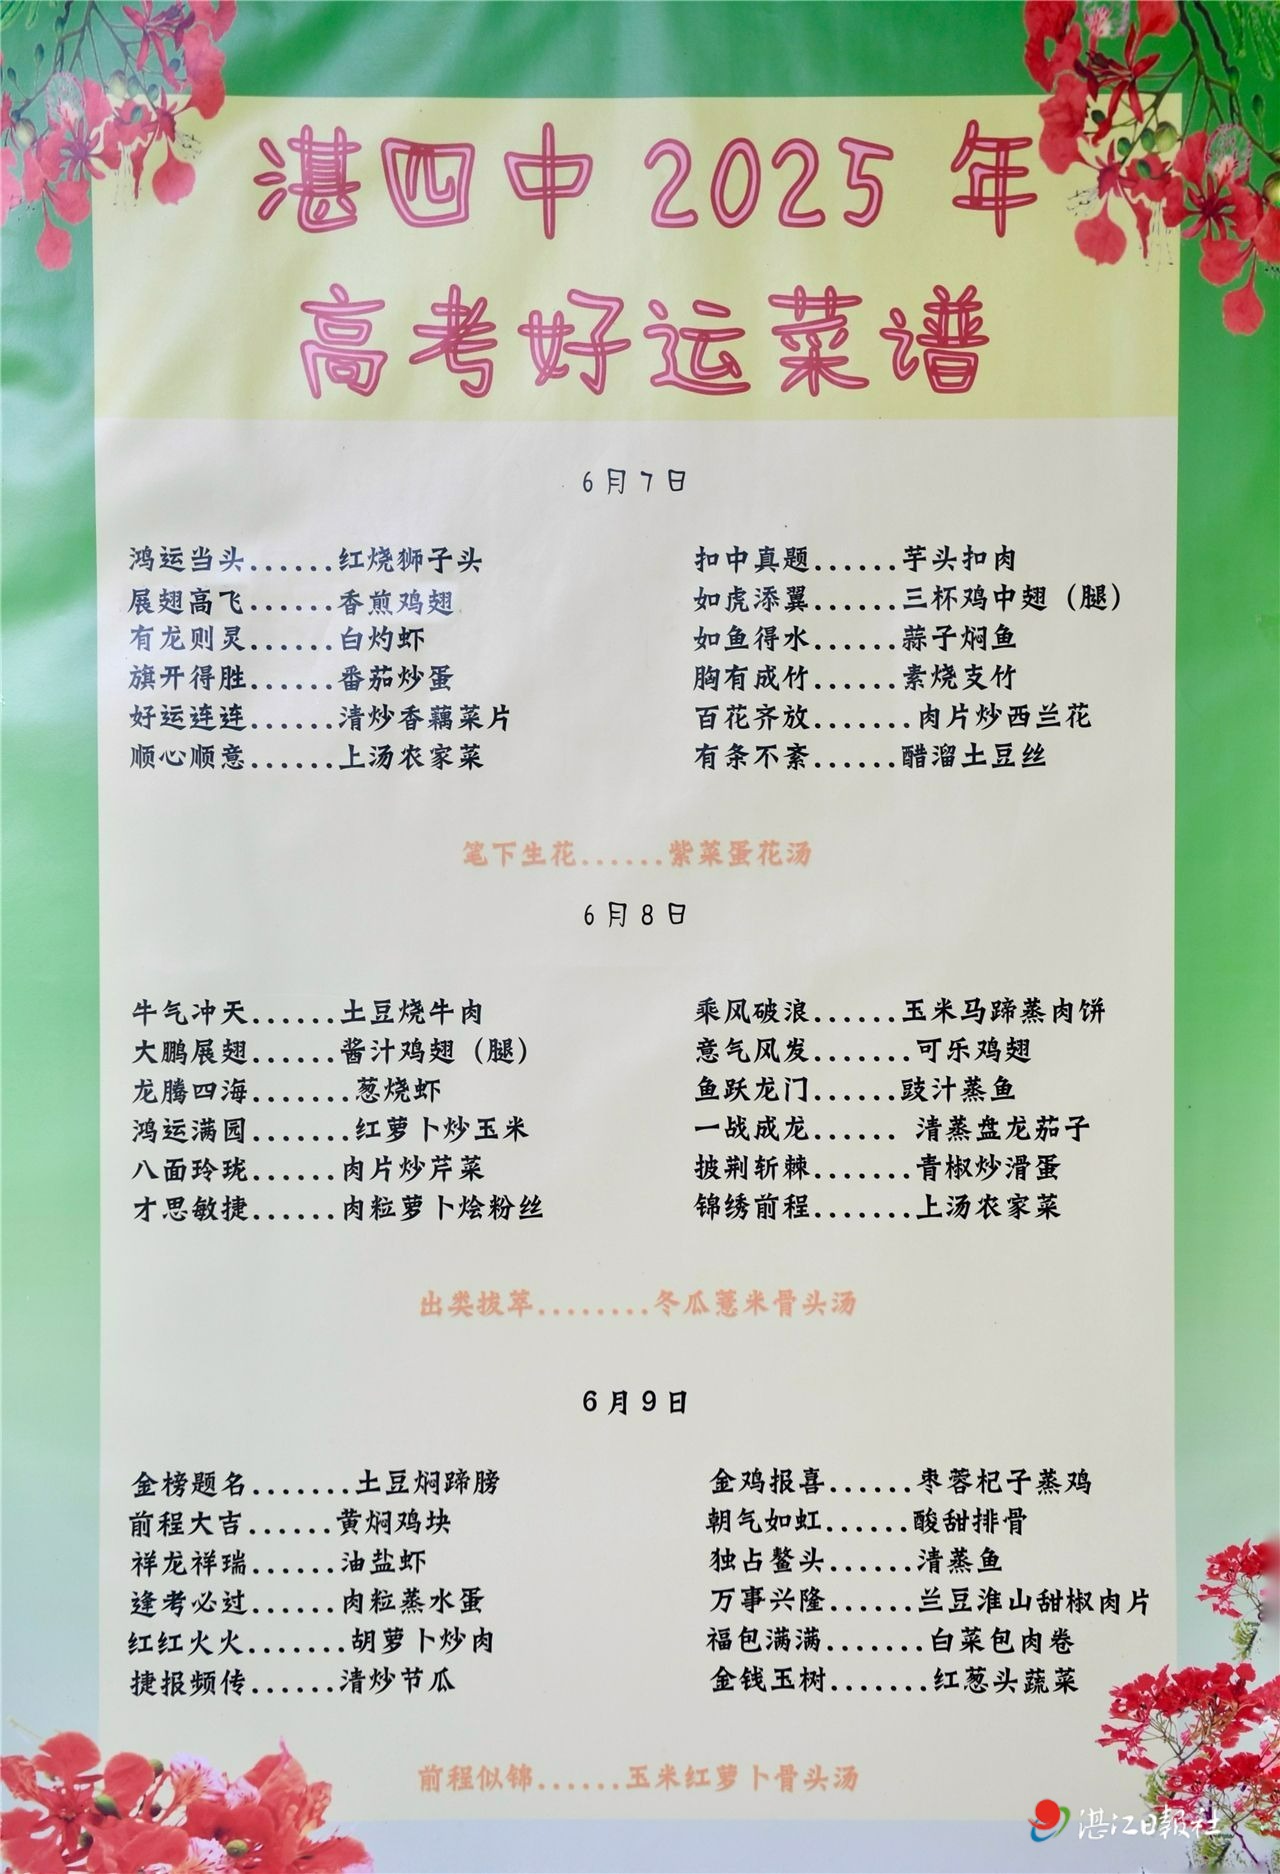 湛四中 2025 年
高考好运菜谱
6月7日
鸿运当头......红烧狮子头
扣中真题......芋头扣肉
展翅高飞......香煎鸡翅
如虎添翼......三杯鸡中翅（腿）
有龙则灵......白灼虾
如鱼得水......蒜子焖鱼
旗开得胜......番茄炒蛋
胸有成竹......素烧支竹
好运连连......清炒香藕菜片
百花齐放.......肉片炒西兰花
顺心顺意......上汤农家菜
有条不紊......醋溜土豆丝
笔下生花......紫菜蛋花汤
6月8日
牛气冲天......土豆烧牛肉
乘风破浪......玉米马蹄蒸肉饼
大鹏展翅......酱汁鸡翅（腿）
意气风发.......可乐鸡翅
龙腾四海.......葱烧虾
鱼跃龙门......豉汁蒸鱼
鸿运满园.......红萝卜炒玉米
一战成龙...... 清蒸盘龙茄子
八面玲珑......肉片炒芹菜
披荆斩棘.......青椒炒滑蛋
才思敏捷......肉粒萝卜烩粉丝
锦绣前程.......上汤农家菜
出类拔萃........冬瓜薏米骨头汤
6月9日
金榜题名.......土豆焖蹄膀
金鸡报喜......枣蓉杞子蒸鸡
前程大吉......黄焖鸡块
朝气如虹......酸甜排骨
祥龙祥瑞......油盐虾
独占鳌头......清蒸鱼
逢考必过......肉粒蒸水蛋
万事兴隆......兰豆淮山甜椒肉片
红红火火.......胡萝卜炒肉
福包满满.......白菜包肉卷
捷报频传......清炒节瓜
金钱玉树.......红葱头蔬菜
前程似锦......玉米红萝卜骨头汤
湛江日報社